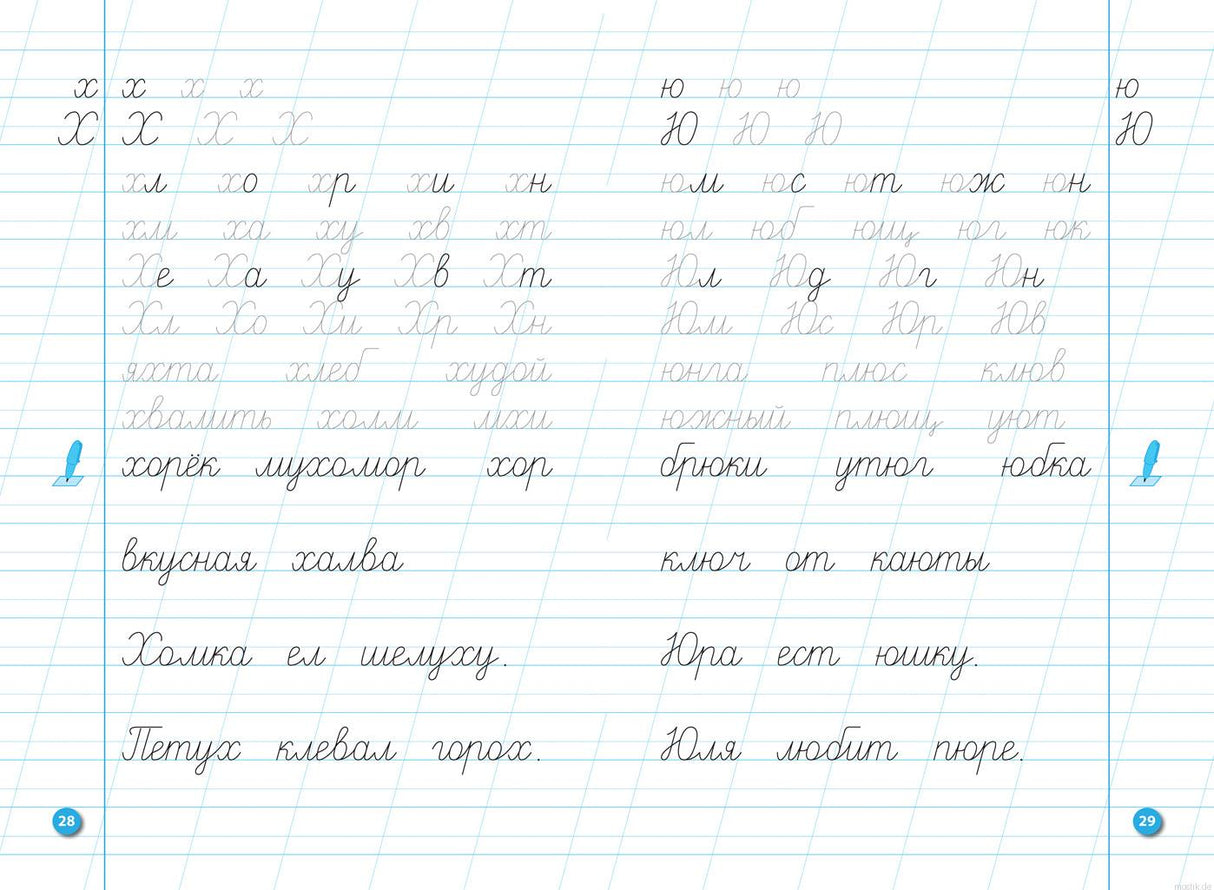 х х х х
Х Х Х Х
хл хо хр хи хн
хм ха ху хв хт
Хе Ха Ху Хв Хт
Хл Хо Хи Хр Хн
яхта хлеб худой
хвалить холм мхи
хорёк мухомор хор
вкусная халва
Хомка ел шелуху.
Петух клевал горох.
28
ю ю ю ю
Ю Ю Ю Ю
юм юс ют юж юн
юл юб ющ юг юк
Юл Юд Юг Юн
Юм Юс Юр Юв
юнга плюс клюв
южный плющ уют
брюки утюг юбка
ключ от каюты
Юра ест юшку.
Юля любит пюре.
29
mostik.de